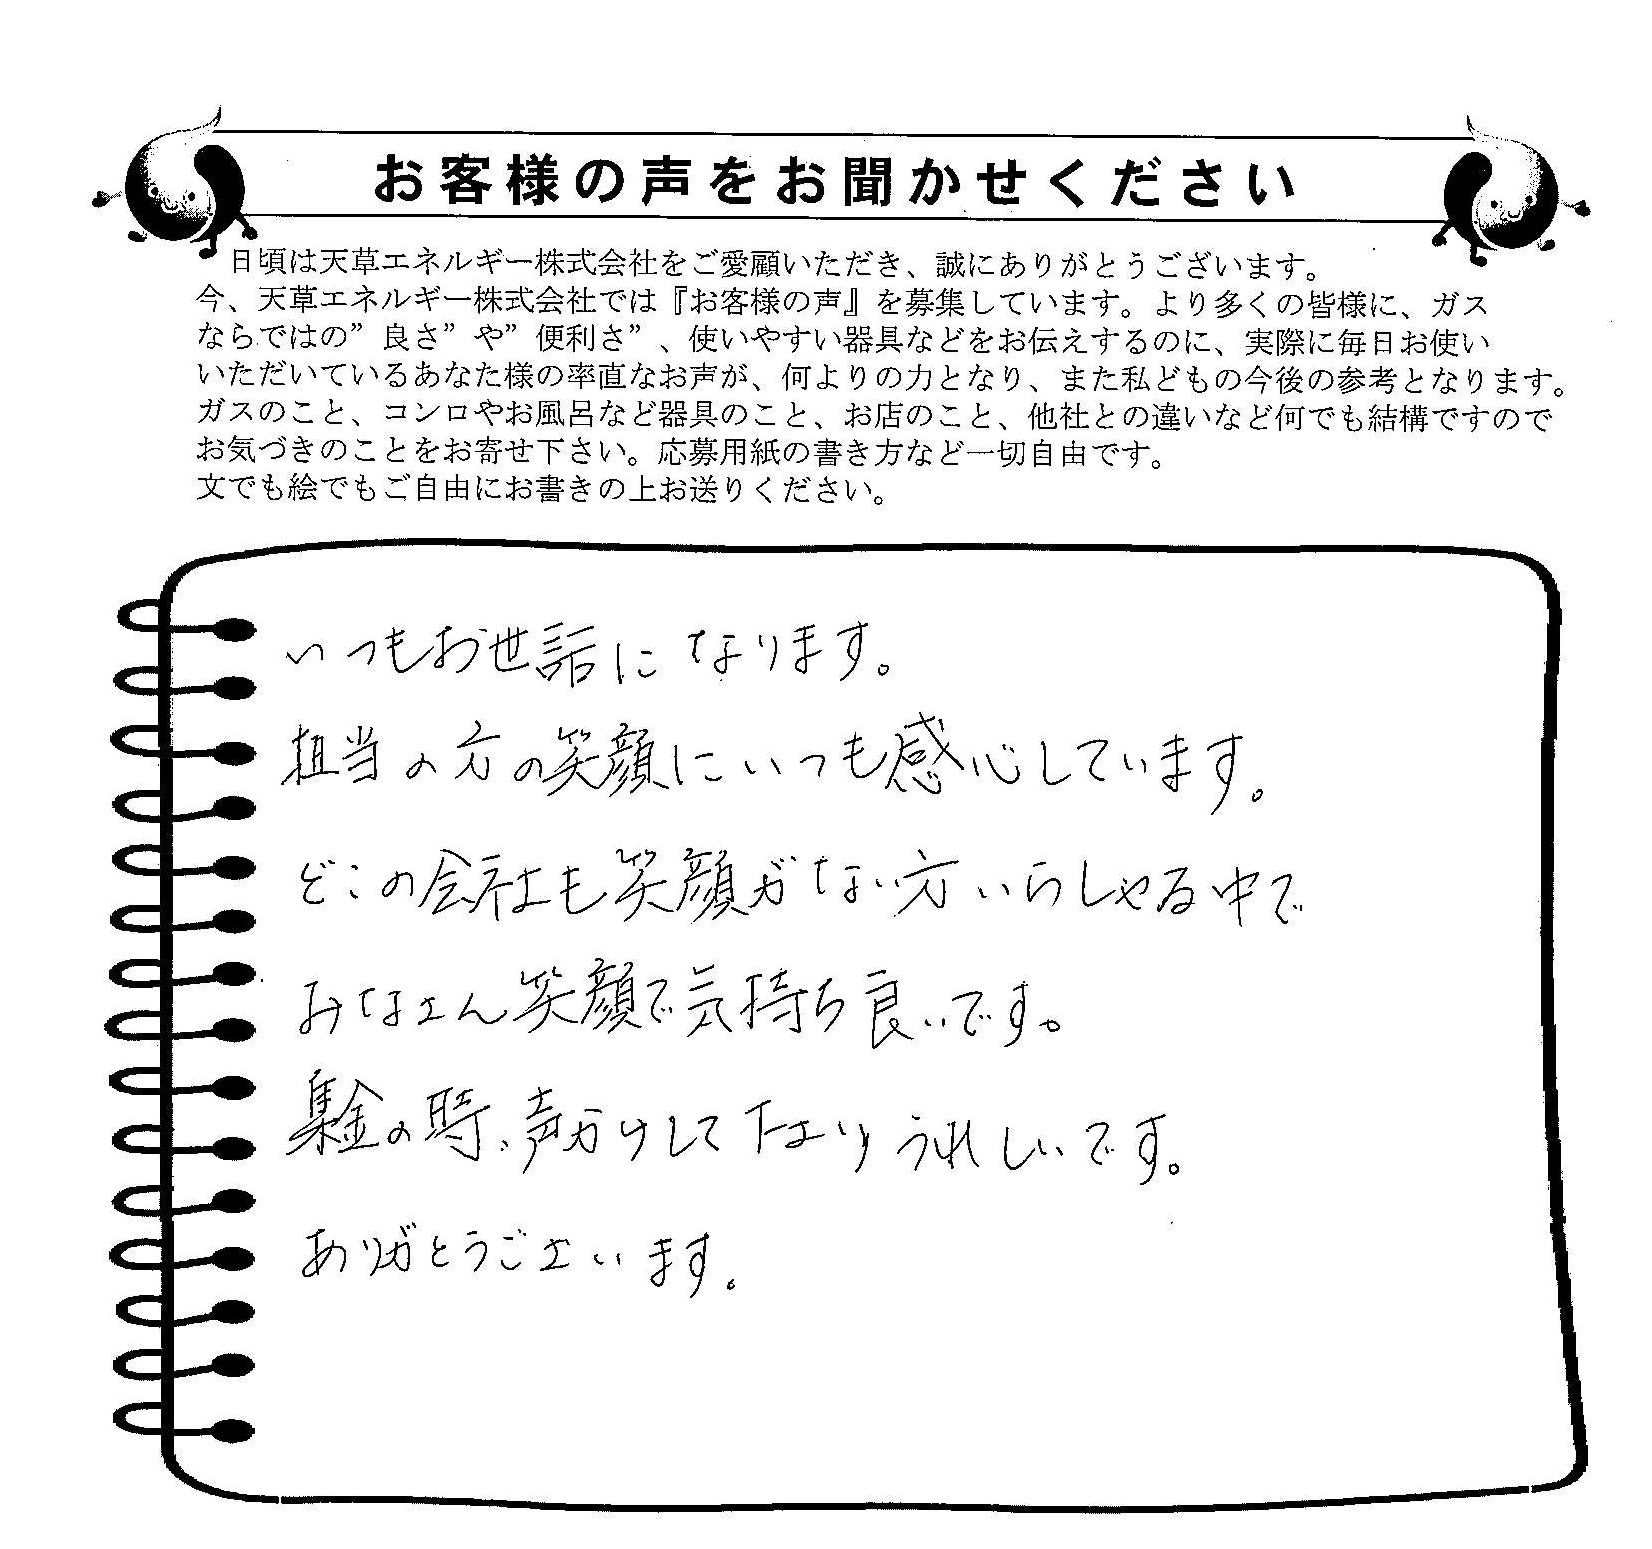 お客様の声をお聞かせください
日頃は天草エネルギー株式会社をご愛顧いただき、誠にありがとうございます。
今、天草エネルギー株式会社では『お客様の声』を募集しています。より多くの皆様に、ガス
ならではの”良さ”や”便利さ”、使いやすい器具などをお伝えするのに、実際に毎日お使い
いただいているあなた様の率直なお声が、何よりの力となり、また私どもの今後の参考となります。
ガスのこと、コンロやお風呂など器具のこと、お店のこと、他社との違いなど何でも結構ですので
お気づきのことをお寄せ下さい。応募用紙の書き方など一切自由です。
文でも絵でもご自由にお書きの上お送りください。
いつもお世話になります。
担当の方の笑顔にいつも感心しています。
どこの会社も笑顔がない方いらしゃる中で
みなさん笑顔で気持ち良いです。
集金の時、声かけして下さりうれしいです。
ありがとうございます。